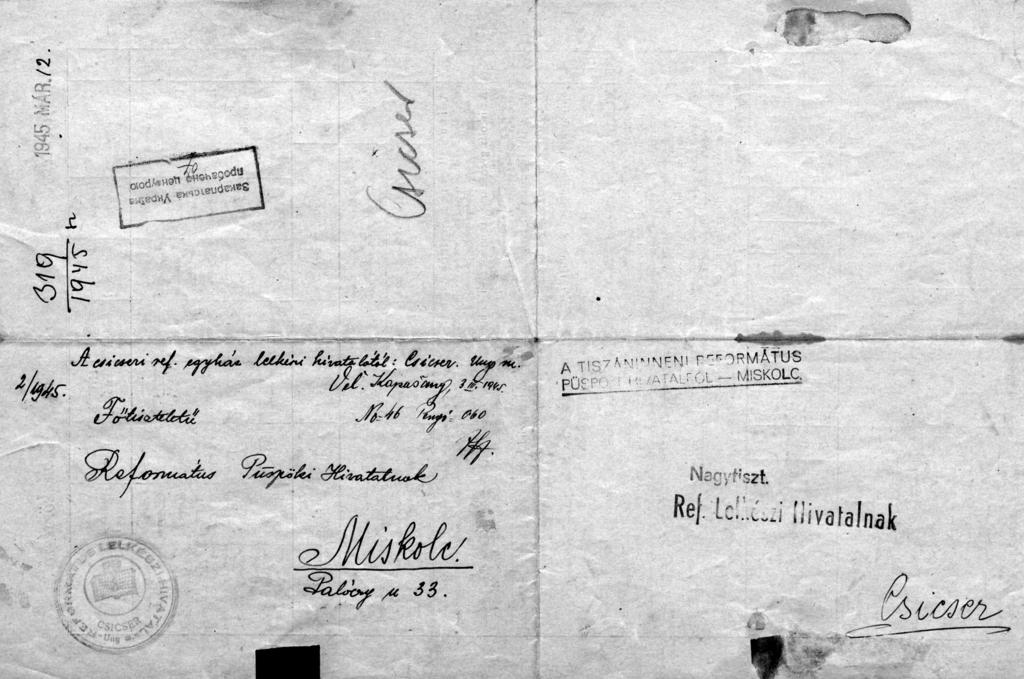 1945 MÁR. 12.
Csicser
Закарпатська Україна
пробачено цензурою
319
1945
A csicseri ref. egyház lelkészi hivatalától: Csicser. Ung m.
2/1945.
Vel. Kapušany, 3 III. 1945.
Főtiszteletű
No 46 Pengő 060
Református Püspöki Hivatalnak
Miskolc.
Palóczy u 33.
REFORMÁTUS LELKÉSZI HIVATAL
CSICSER
Ung m.
A TISZÁNINNENI REFORMÁTUS
PÜSPÖKI HIVATALTÓL — MISKOLC.
Nagytiszt.
Ref. Lelkészi Hivatalnak
Csicser